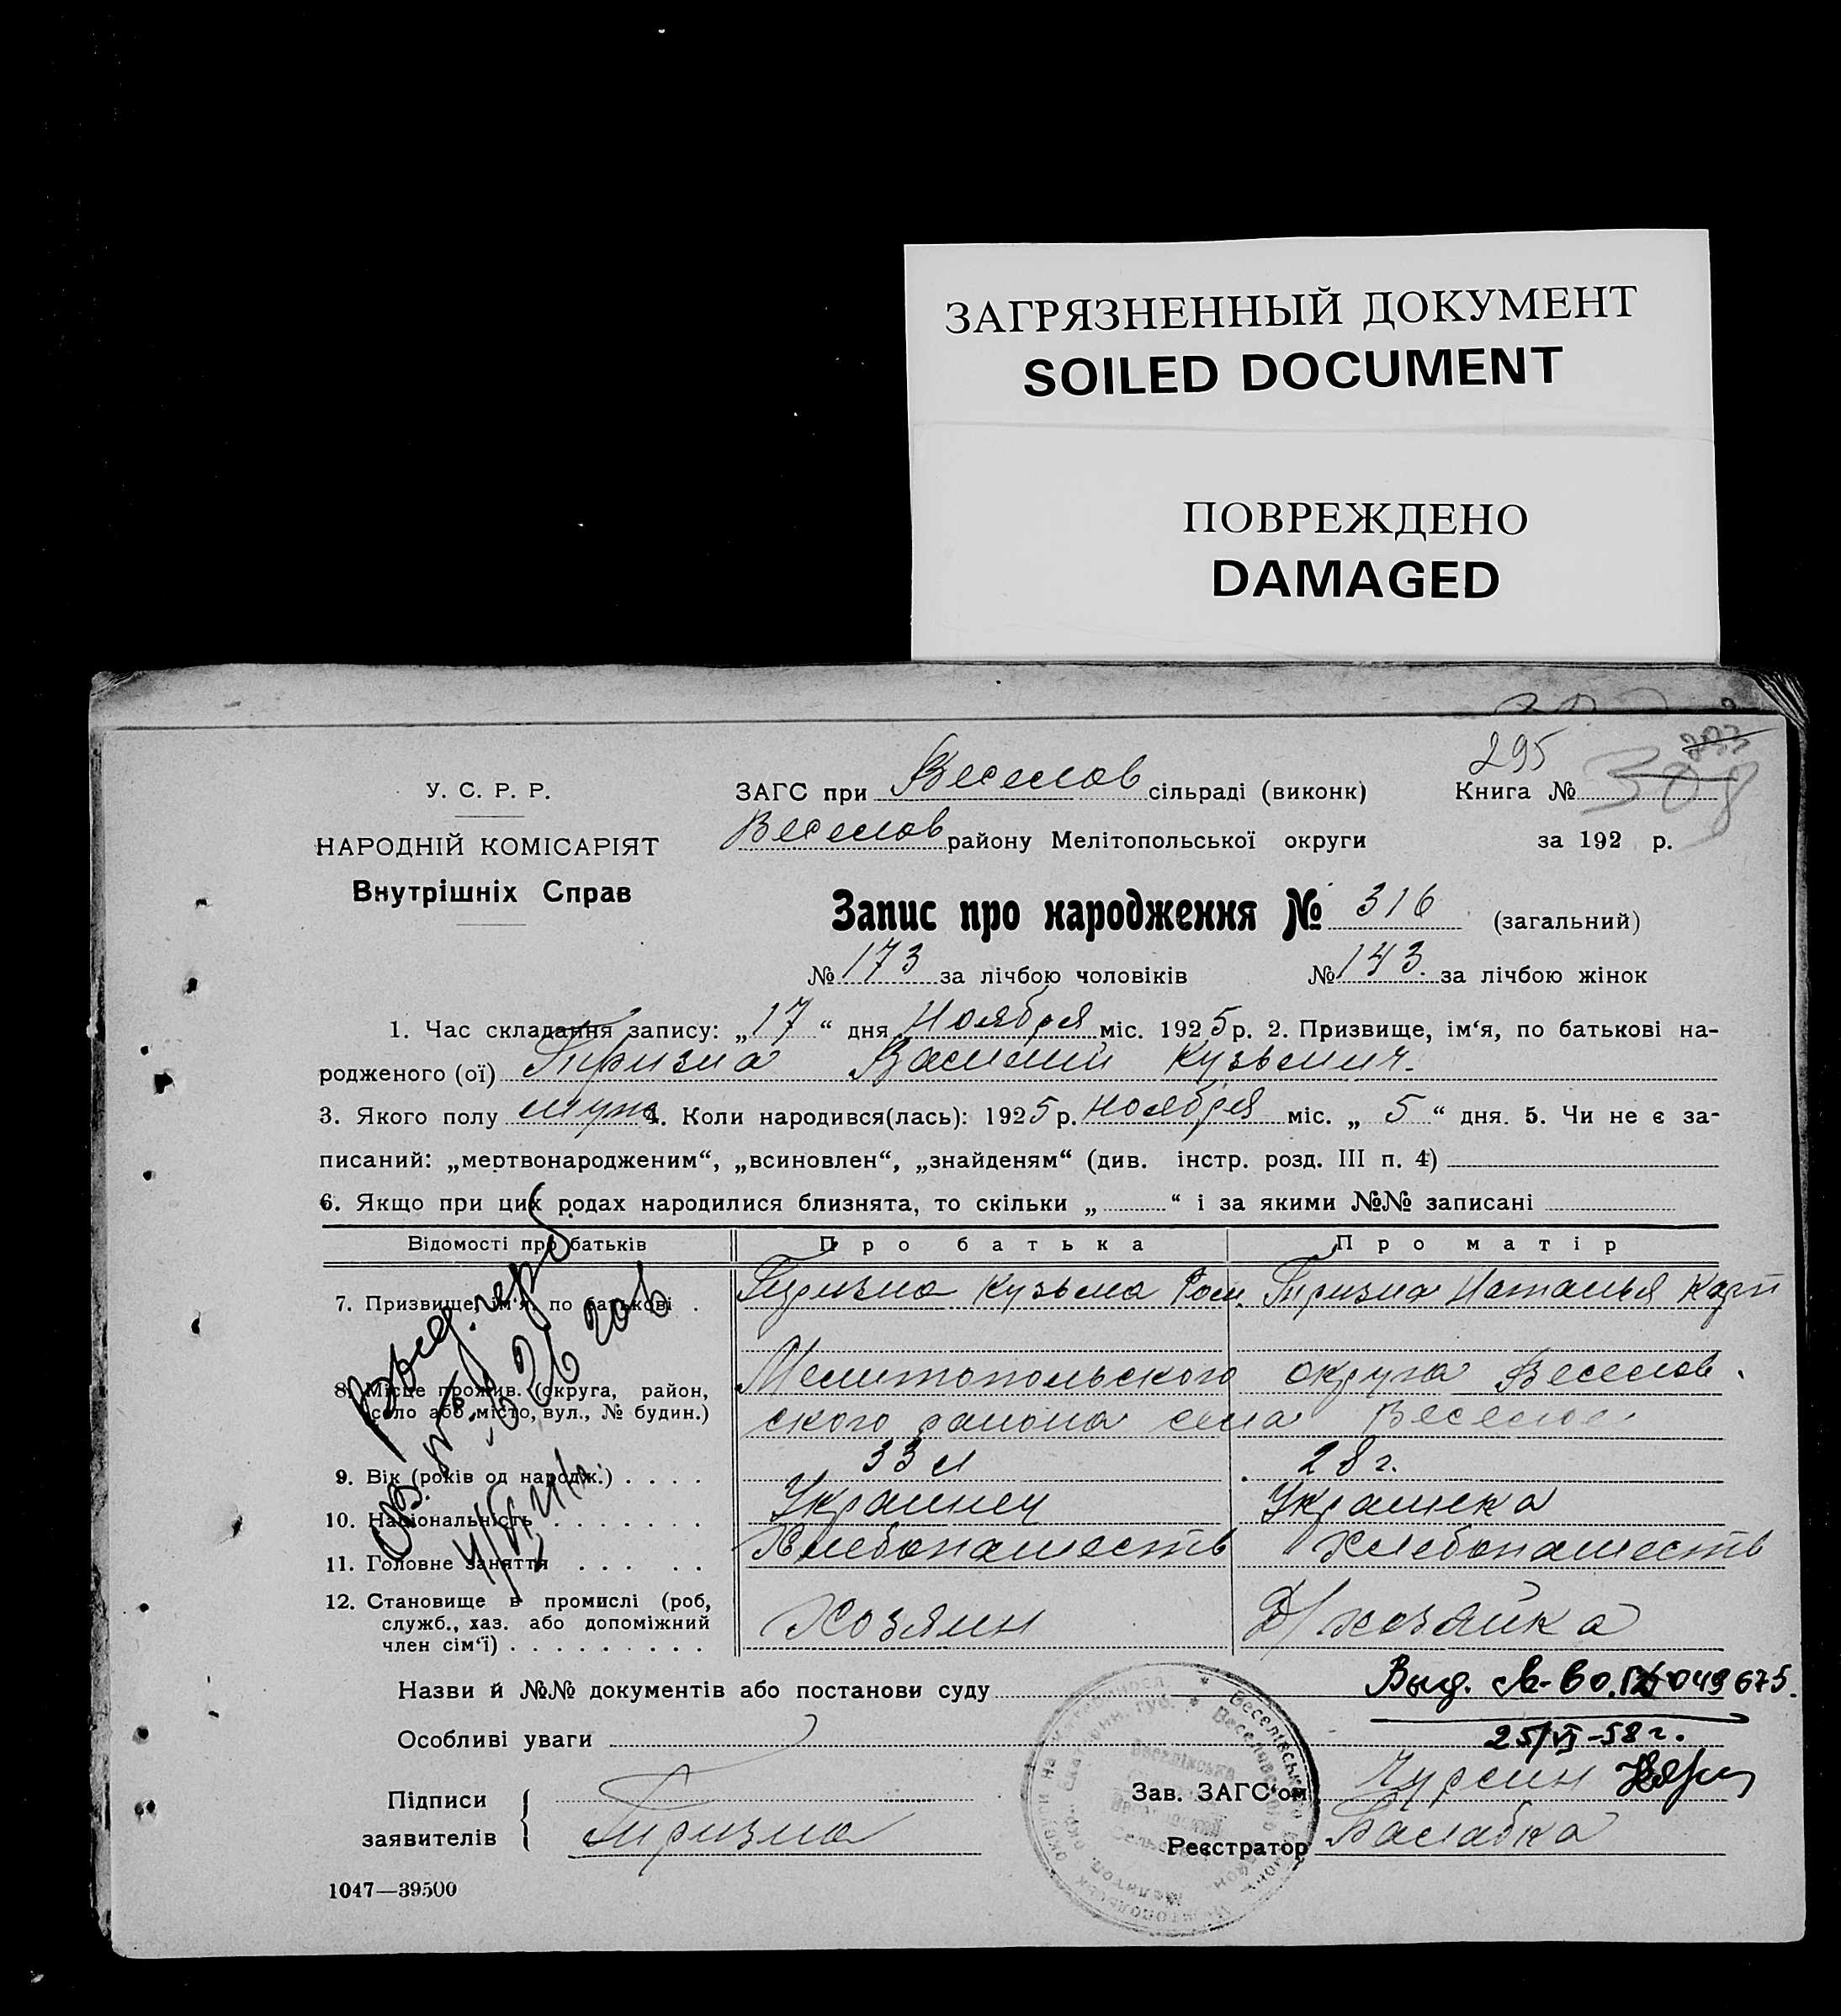 ЗАГРЯЗНЕННЫЙ ДОКУМЕНТ
SOILED DOCUMENT
ПОВРЕЖДЕНО
DAMAGED
295
У. С. Р. Р.
ЗАГС при Веселов сільраді (виконк) Книга № 308
НАРОДНІЙ КОМІСАРІЯТ
Веселов району Мелітопольської округи за 192 р.
Внутрішніх Справ
Запис про народження № 316 (загальний)
№ 173 за лічбою чоловіків № 143. за лічбою жінок
1. Час складання запису: „17“ дня Ноября міс. 1925 р. 2. Призвище, ім‘я, по батькові на-
родженого (ої) Гиризна Василий Кузьмич.
3. Якого полу муж 4. Коли народився(лась): 1925 р. ноября міс. „5“ дня. 5. Чи не є за-
писаний: „мертвонародженим“, „всиновлен“, „знайденям“ (див. інстр. розд. III п. 4)
6. Якщо при цих родах народилися близнята, то скільки „ “ і за якими №№ записані
Відомості про батьків Про батька Про матір
7. Призвище, ім‘я, по батькові . Кузьма Ром. Наталья Карп
8. Місце прожив. (округа, район, Мелитопольского округа Веселов
село або місто, вул., № будин.) ского района села Веселое
9. Вік (років од народж.) . . . . 33 л 28 г.
10. Національність . . . . . . . Украинец Украинка
11. Головне заняття . . . . . Хлебопашеств Хлебопашеств
12. Становище в промислі (роб,
служб., хаз. або допоміжний
член сім‘ї) . . . . . . . . . Хозяин Д/хозяйка
Назви й №№ документів або постанови суду Выд. 049675.
Особливі уваги 25/VI-58 г.
Підписи
заявителів
Зав. ЗАГС‘ом
Реєстратор
1047—39500